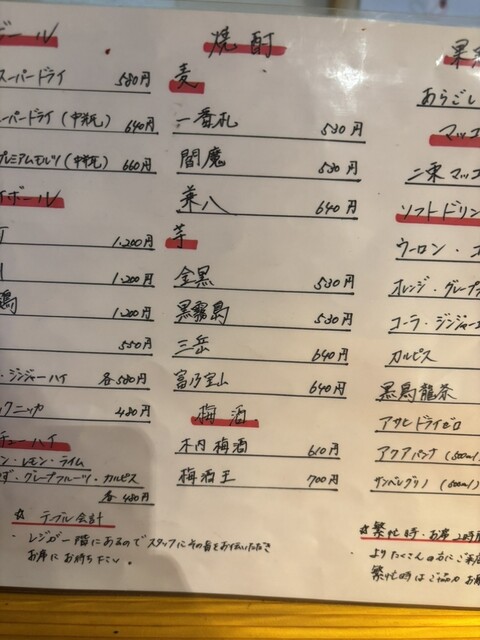 ビール
スーパードライ 580円
スーパードライ(中瓶) 640円
プレミアムモルツ(中瓶) 660円
イボール
1.200円
1.200円
1.200円
550円
・ジンジャーハイ 各580円
ックニッカ 480円
チューハイ
ン・レモン・ライム
ず・グレープフルーツ・カルピス
各480円
☆ テーブル会計
・レジが一階にあるのでスタッフにその旨をお伝えいただき
お席にお待ち下さい。
焼酎
麦
一番札 530円
閻魔 530円
兼八 640円
芋
金黒 530円
黒霧島 530円
三岳 640円
富乃宝山 640円
梅酒
木内梅酒 610円
梅酒王 700円
果
あらごし
マッコ
二東マッコ
ソフトドリン
ウーロン・
オレンジ・グレープ
コーラ・ジンジャー
カルピス
黒烏龍茶
アサヒドライゼロ
アクアパンナ(500ml)
サンペレグリノ(500ml)
☆繁忙時・お席2時間
よりたくさんの方にご来
繁忙時はご協力お